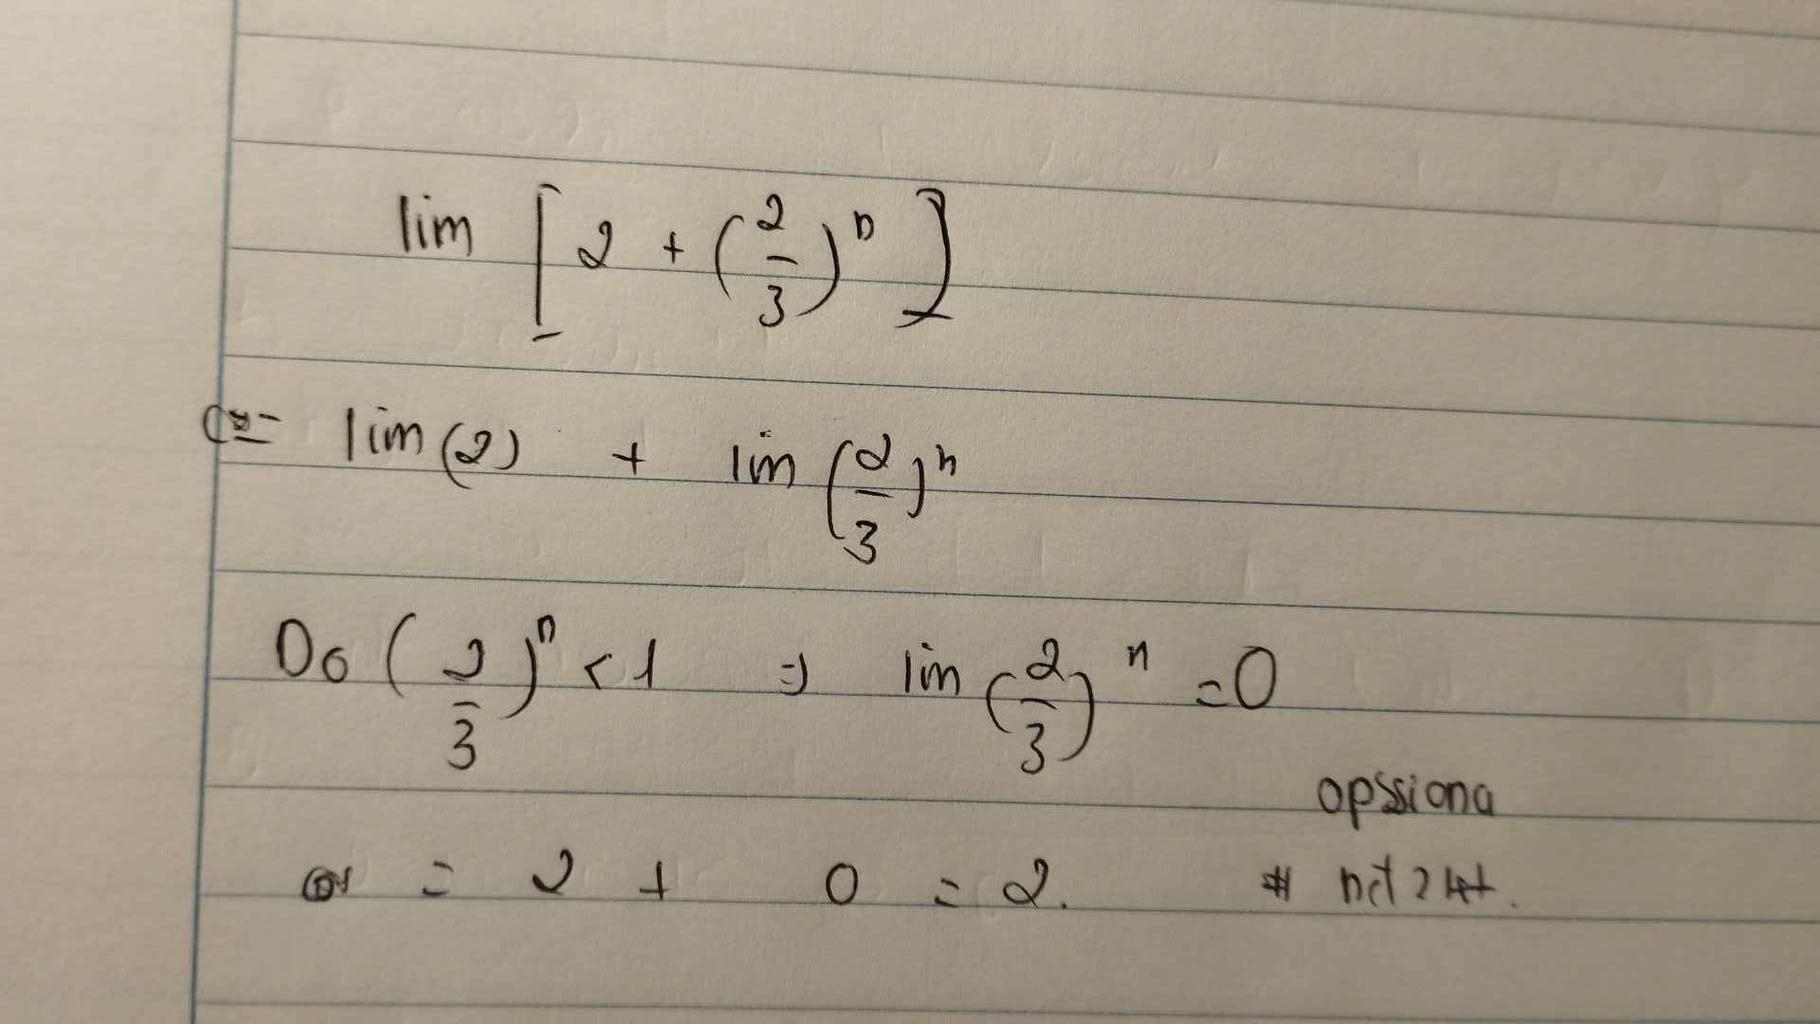 lim [2 + (2/3)ⁿ]
= lim (2) + lim (2/3)ⁿ
Do (2/3)ⁿ < 1 => lim (2/3)ⁿ = 0
opssiona
= 2 + 0 = 2. #